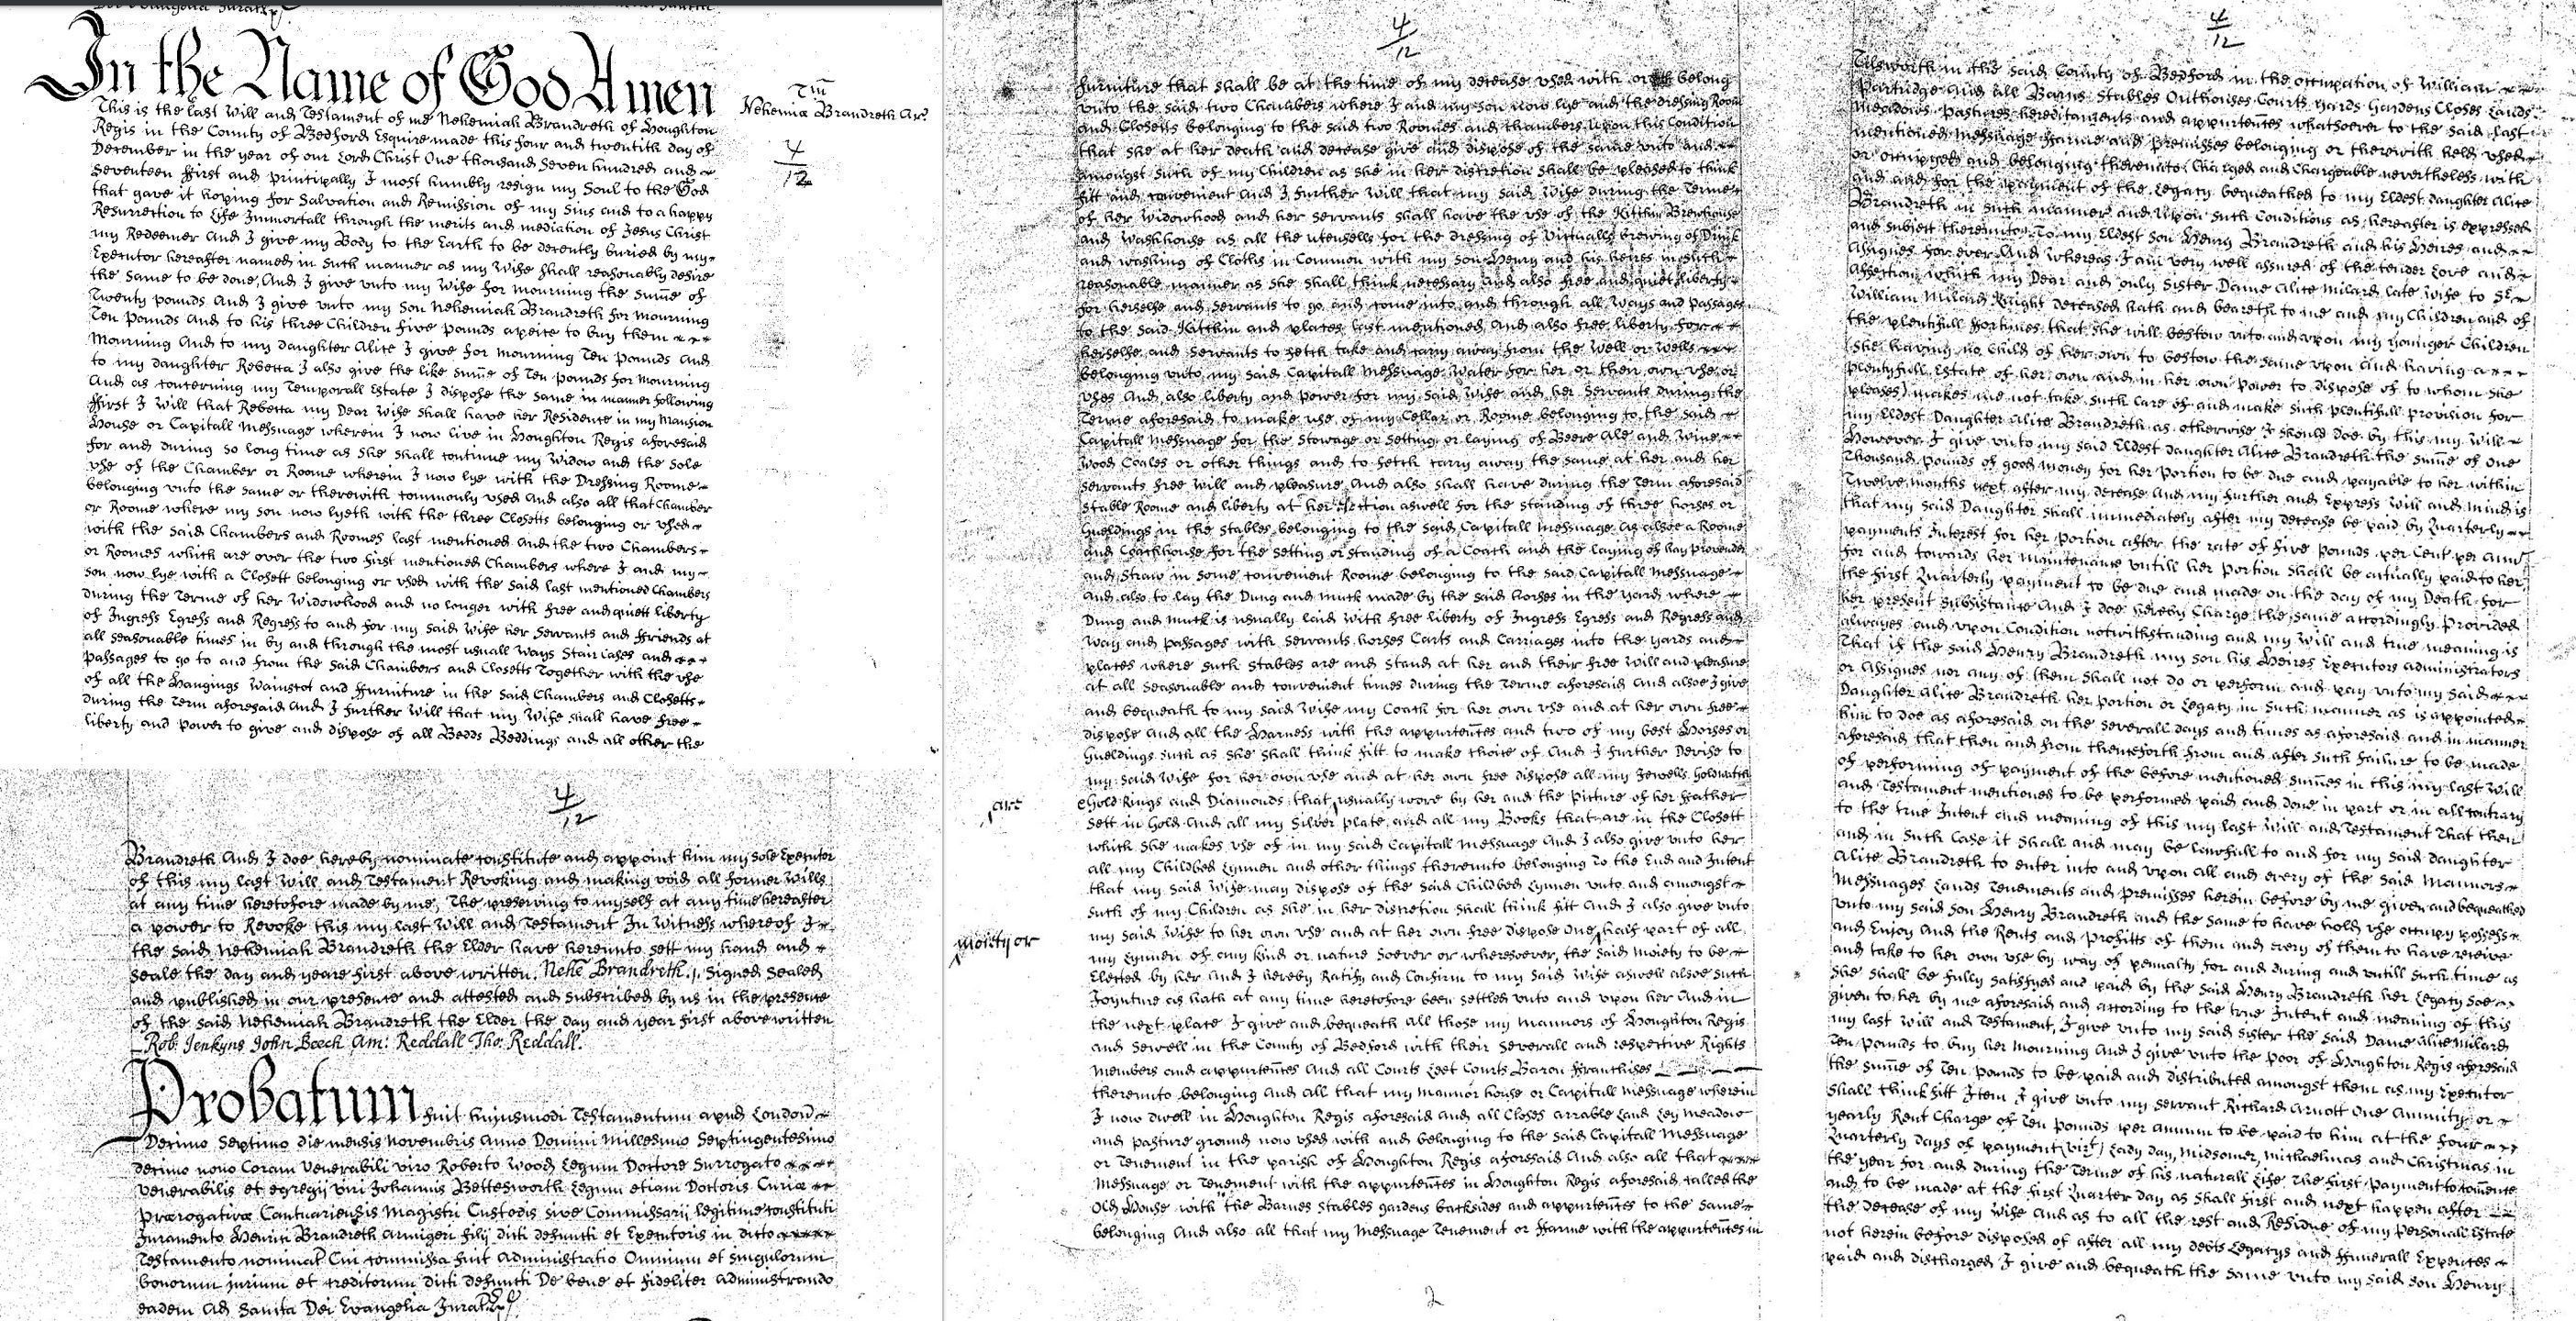 In the Name of God Amen
Tm
Nehemiæ Brandreth Arr.
4
12
This is the Last Will and Testament of me Nehemiah Brandreth of Houghton
Regis in the County of Bedford Esquire made this four and twentith day of
December in the year of our Lord Christ One thousand Seven hundred and
Seventeen ffirst and principally I most humbly resign my Soul to the God
that gave it hoping for Salvation and Remission of my Sins and to a happy
Resurrection to Life Immortall through the merits and mediation of Jesus Christ
my Redeemer And I give my Body to the Earth to be decently buried by my
Executor hereafter named in such manner as my Wife shall reasonably desire
the same to be done, And I give unto my Wife for mourning the sume of
Twenty pounds And I give unto my Son Nehemiah Brandreth for Mourning
Ten Pounds And to his three Children five pounds apeice to buy them
Mourning And to my daughter Alice I give for mourning Ten pounds And
to my daughter Rebecca I also give the like sume of Ten pounds for Mourning
And as concerning my Temporall Estate I dispose the same in manner following
ffirst I will that Rebecca my Dear Wife shall have her Residence in my Mansion
House or Capitall Messuage wherein I now live in Houghton Regis aforesaid
for and during so long time as she shall continue my Widow and the sole
use of the Chamber or Roome wherein I now lye with the Dressing Roome
belonging unto the same or therewith commonly used And also all that Chamber
or Roome where my son now lyeth with the three Closetts belonging or used
with the said Chambers and Roomes last mentioned And the two Chambers
or Roomes which are over the two first mentioned Chambers where I and my
son now lye with a Closett belonging or used with the said last mentioned Chambers
during the Terme of her Widowhood and no longer with free and quiett liberty
of Ingress Egress and Regress to and for my said Wife her Servants and ffriends at
all seasonable times in by and through the most usuall Ways Stair Cases and
passages to go to and from the said Chambers and Closetts Together with the use
of all the Hangings Wainscot and ffurniture in the said Chambers and Closetts
during the Term aforesaid And I further Will that my Wife shall have free
liberty and power to give and dispose of all Bedds Beddings and all other the
4
12
furniture that shall be at the time of my decease used with or belong
unto the said two Chambers where I and my son now lye and the dressing Room
and Closetts belonging to the said two Roomes and Chambers upon this Condition
that she at her death and decease give and dispose of the same unto and
amongst such of my Children as she in her discretion shall be pleased to think
fitt and convenient And I further Will that my said Wife during the Terme
of her Widowhood and her servants shall have the use of the Kitchin Brewhouse
and Washhouse as all the utensells for the dressing of Victualls brewing of Drink
and washing of Cloths in Common with my son Henry and his heires in such
reasonable manner as she shall think necessary And also free and quiet liberty
for herselfe and Servants to go and come into and through all Ways and passages
to the said Kitchin and places last mentioned And also free liberty for
herselfe and servants to fetch take and carry away from the Well or Wells
belonging unto my said Capitall Messuage Water for her or their own use or
uses And also liberty and power for my said Wife and her Servants during the
Terme aforesaid to make use of my Cellar or Roome belonging to the said
Capitall Messuage for the stowage or setting or laying of Beere Ale and Wine
Wood Coales or other things and to fetch carry away the same at her and her
servants free will and pleasure And also shall have during the Term aforesaid
stable Roome and liberty at her Election aswell for the standing of three horses or
Gueldings in the stables belonging to the said Capitall Messuage As alsoe a Roome
and Coachhouse for the setting or standing of a Coach and the laying of hay provender
and straw in some convenient Roome belonging to the said Capitall Messuage
And also to lay the Dung and muck made by the said horses in the yard where
Dung and muck is usually laid with free liberty of Ingress Egress and Regress and
Way and passages with servants horses Carts and Carriages into the yards and
places where such stables are and stand at her and their free will and pleasure
at all seasonable and convenient times during the Terme aforesaid And alsoe I give
and bequeath to my said Wife my Coach for her own use and at her own free
dispose And all the Harness with the appurtences and two of my best Horses or
Gueldings such as she shall think fitt to make choice of And I further Devise to
my said Wife for her own use and at her own free dispose all my Jewells Goldwatch
Gold Rings and Diamonds that usually wore by her and the Picture of her ffather
are
sett in Gold And all my Silver plate and all my Books that are in the Closett
which she makes use of in my said Capitall Messuage And I also give unto her
all my Childbed Lynnen and other things thereunto belonging To the End and Intent
that my said Wife may dispose of the said Childbed Lynnen unto and amongst
such of my Children as she in her discretion shall think fitt And I also give unto
my said Wife to her own use and at her own free dispose One half part of all
moiety or
my Lynnen of any kind or nature soever or wheresoever, the said moiety to be
Elected by her And I hereby Ratify and Confirm to my said Wife aswell alsoe such
Joynture as hath at any time heretofore been settled unto and upon her And in
the next place I give and bequeath all those my Mannors of Houghton Regis
and Sewell in the County of Bedford with their severall and respective Rights
members and appurtences And all Courts Leet Courts Baron ffranchises
thereunto belonging And all that my Mannor house or Capitall Messuage wherein
I now dwell in Houghton Regis aforesaid and all Closes arrable Land Ley meadow
and pasture ground now used with and belonging to the said Capitall Messuage
or Tenement in the parish of Houghton Regis aforesaid And also all that
Messuage or Tenement with the appurtences in Houghton Regis aforesaid called the
Old House with the Barnes Stables gardens backsides and appurtences to the same
belonging And also all that my Messuage Tenement or ffarme with the appurtences in
2
4
12
Tilsworth in the said County of Bedford in the occupation of William
Partridge And all Barns Stables Outhouses Courts yards Gardens Closes Lands
Meadows Pastures hereditaments and appurtences whatsoever to the said last
mentioned Messuage ffarme and Premisses belonging or therewith held used
or occupyed and belonging thereunto Charged and Chargeable nevertheless with
and for the payment of the Legacy bequeathed to my Eldest daughter Alice
Brandreth in such manner and upon such Conditions as hereafter is expressed
and subject thereunto, To my Eldest son Henry Brandreth and his Heires and
Assignes for ever And whereas I am very well assured of the tender Love and
Affection which my Dear and only Sister Dame Alice Milard late Wife to Sr
William Milard Knight deceased hath and beareth to me and my Children and of
the plentifull ffortunes that she will bestow unto and upon my younger Children
(she having no Child of her own to bestow the same upon And having a
plentyfull Estate of her own and in her own power to dispose of to whom she
pleases) makes me not take such care of and make such plentifull provision for
my Eldest Daughter Alice Brandreth as otherwise I should doe by this my Will
However I give unto my said Eldest daughter Alice Brandreth the sume of One
Thousand pounds of good money for her Portion to be due and payable to her within
Twelve months next after my decease And my further and Express Will and Mind is
that my said Daughter shall immediately after my decease be paid by Quarterly
payments Interest for her portion after the rate of five pounds per Cent per annu
for and towards her maintenance untill her portion shall be actually paid to her
the first Quarterly payment to be due and made on the day of my Death for
her present subsistance And I doe hereby Charge the same accordingly Provided
alwayes and upon Condition notwithstanding and my Will and true meaning is
That if the said Henry Brandreth my son his Heires Executors administrators
or Assignes nor any of them shall not do or perform and pay unto my said
Daughter Alice Brandreth her portion or Legacy in such manner as is appointed
him to doe as aforesaid on the severall days and times as aforesaid and in manner
aforesaid that then and from thenceforth from and after such failure to be made
of performing of payment of the before mentioned sumes in this my last Will
and Testament mentioned to be performed paid and done in part or in all contrary
to the true Intent and meaning of this my last Will and Testament That then
and in such Case it shall and may be lawfull to and for my said daughter
Alice Brandreth to enter into and upon all and every of the said Mannors
Messuages Lands Tenements and premisses herein before by me given and bequeathed
unto my said son Henry Brandreth and the same to have hold use occupy possess
and Enjoy And the Rents and Profitts of them and every of them to have receive
and take to her own use by way of penalty for and during and untill such time as
she shall be fully satisfyed and paid by the said Henry Brandreth her Legacy soe
given to her by me aforesaid and according to the true Intent and meaning of this
my last Will and Testament, I give unto my said sister the said Dame Alice Milard
Ten pounds to buy her mourning And I give unto the poor of Houghton Regis aforesaid
the sume of Ten pounds to be paid and distributed amongst them as my Executor
shall think fitt Item I give unto my servant Richard Arnott One Annuity or
yearly Rent Charge of Ten pounds per annum to be paid to him at the four
Quarterly days of payment (vizt) Lady day, Midsomer, Michaelmas and Christmas in
the year for and during the Terme of his naturall Life The first payment to comence
and to be made at the first Quarter day as shall first and next happen after
the decease of my Wife And as to all the rest and Residue of my personall Estate
not herein before disposed of after all my debts Legacys and ffunerall Expences
paid and discharged I give and bequeath the same unto my said son Henry
4
12
Brandreth And I doe hereby nominate constitute and appoint him my sole Executor
of this my last Will and Testament Revoking and making void all former Wills
at any time heretofore made by me, The preserving to myself at any time hereafter
a power to Revoke this my last Will and Testament In Witness whereof I
the said Nehemiah Brandreth the Elder have hereunto sett my hand and
Seale the day and yeare first above written. Nehe. Brandreth. Signed Sealed
and published in our presence and attested and subscribed by us in the presence
of the said Nehemiah Brandreth the Elder the day and year first above written
Rob: Jenkyns John Beech Am: Reddall Tho: Reddall.
Probatum fuit hujusmodi Testamentum apud London
Decimo Septimo die mensis Novembris Anno Domini Millesimo Septingentesimo
decimo nono Coram Venerabili viro Roberto Wood Legum Doctore Surrogato
Venerabilis et egregij viri Johannis Bettesworth Legum etiam Doctoris Curiæ
Prærogativæ Cantuariensis Magistri Custodis sive Commissarij legitime constituti
Juramento Henrici Brandreth Armigeri filij dicti defuncti et Executoris in dicto
Testamento nominat Cui commissa fuit Administratio Omnium et singulorum
bonorum jurium et creditorum dicti defuncti De bene et fideliter Administrando
eadem Ad Sancta Dei Evangelia Jurat